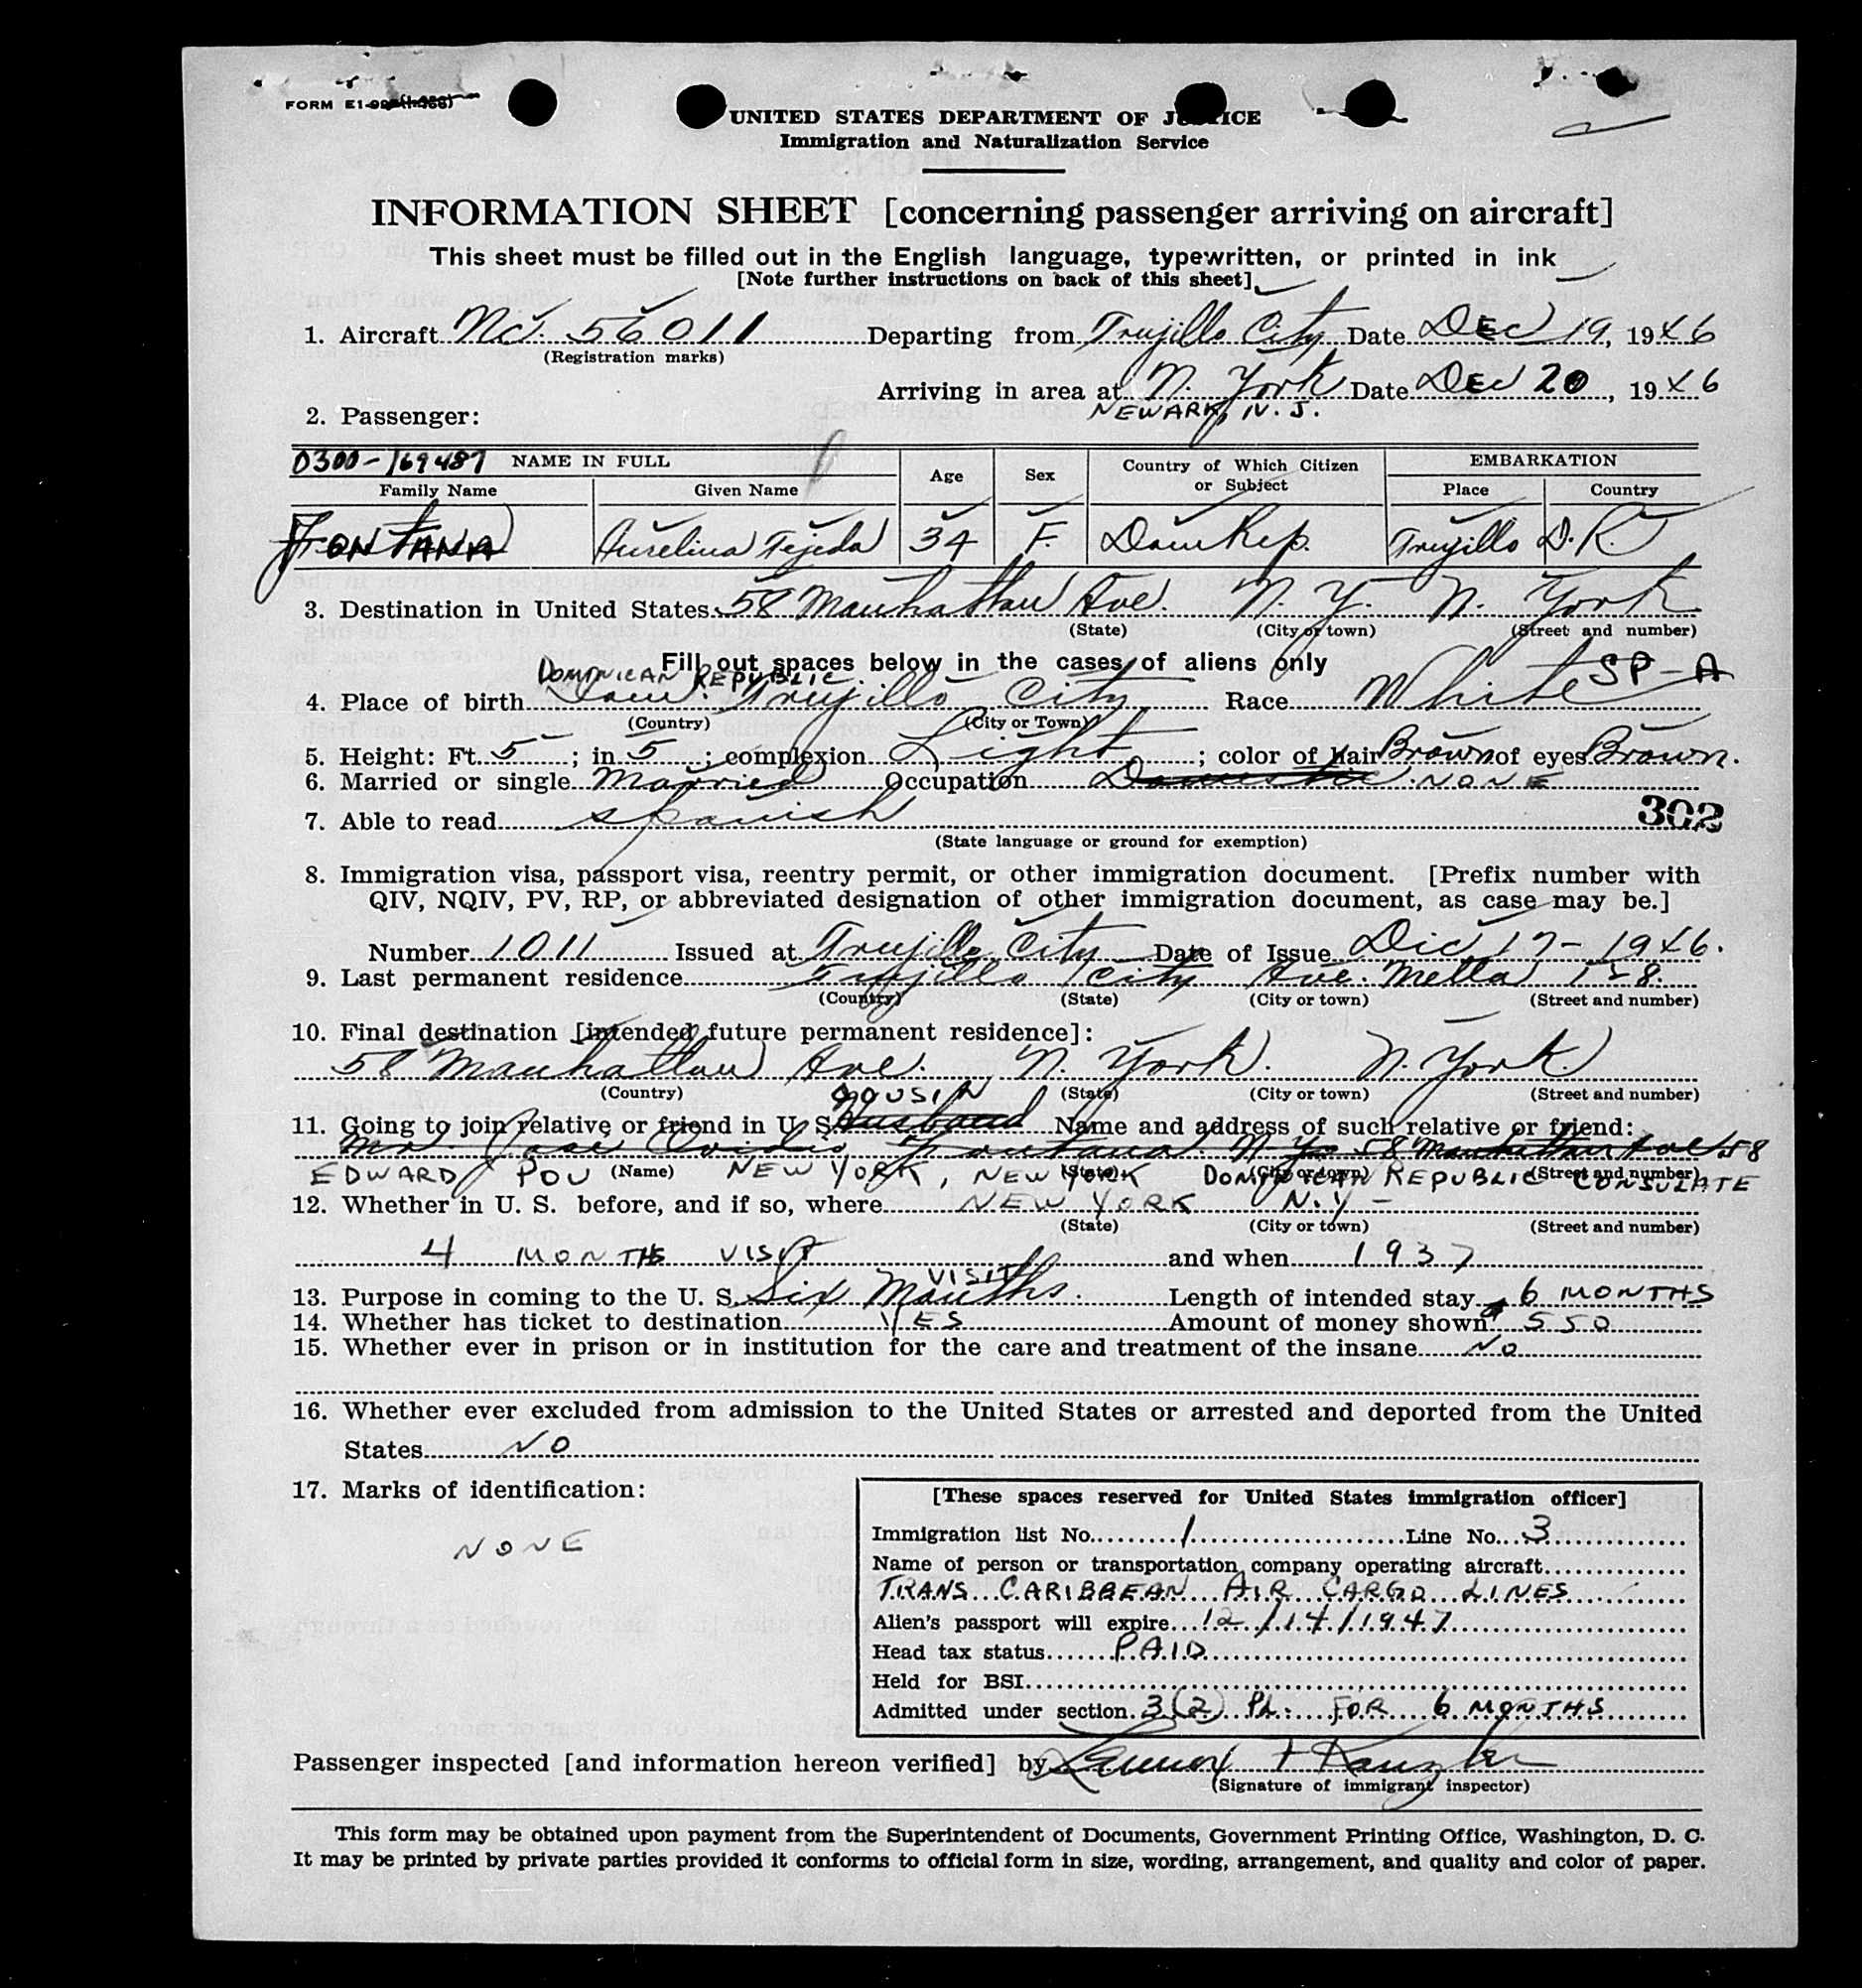 FORM
UNITED STATES DEPARTMENT OF JUSTICE
Immigration and Naturalization Service
INFORMATION SHEET [concerning passenger arriving on aircraft]
This sheet must be filled out in the English language, typewritten, or printed in ink
[Note further instructions on back of this sheet]
1. Aircraft Nc. 56011 Departing from Trujillo City Date Dec 19, 1946
(Registration marks)
Arriving in area at N. York Date Dec 20, 1946
NEWARK, N. J.
2. Passenger:
0300-169487 NAME IN FULL Age Sex Country of Which Citizen or Subject EMBARKATION
Family Name Given Name Place Country
FONTANA Aurelina Tejeda 34 F. Dom Rep. Trujillo D.R.
3. Destination in United States 58 Manhattan Ave. N. Y. N. York
(State) (City or town) (Street and number)
Fill out spaces below in the cases of aliens only
DOMINICAN REPUBLIC SP-A
4. Place of birth Dom. Trujillo City Race White
(Country) (City or Town)
5. Height: Ft. 5; in 5; complexion Light; color of hair Brown of eyes Brown.
6. Married or single Married Occupation Domestic NONE
7. Able to read spanish 302
(State language or ground for exemption)
8. Immigration visa, passport visa, reentry permit, or other immigration document. [Prefix number with
QIV, NQIV, PV, RP, or abbreviated designation of other immigration document, as case may be.]
Number 1011 Issued at Trujillo City Date of Issue Dic 17-1946.
9. Last permanent residence Trujillo City Ave. Mella 128.
(Country) (State) (City or town) (Street and number)
10. Final destination [intended future permanent residence]:
58 Manhattan Ave. N. York. N. York
(Country) (State) (City or town) (Street and number)
COUSIN
11. Going to join relative or friend in U. S. Husband Name and address of such relative or friend:
Mr. Jose Ovidio Fontana. N. Yo 58 Manhattan Ave 58
(Name) (State) (City or town) (Street and number)
EDWARD POU NEW YORK, NEW YORK DOMINICAN REPUBLIC CONSULATE
12. Whether in U. S. before, and if so, where NEW YORK N.Y-
(State) (City or town) (Street and number)
4 MONTHS VISIT and when 1937
VISIT
13. Purpose in coming to the U. S. Six Months. Length of intended stay 6 MONTHS
14. Whether has ticket to destination YES Amount of money shown 550
15. Whether ever in prison or in institution for the care and treatment of the insane No
16. Whether ever excluded from admission to the United States or arrested and deported from the United
States NO
17. Marks of identification:
NONE
[These spaces reserved for United States immigration officer]
Immigration list No. 1 Line No. 3
Name of person or transportation company operating aircraft
TRANS CARIBBEAN AIR CARGO LINES
Alien's passport will expire 12/14/1947
Head tax status PAID
Held for BSI
Admitted under section 3(2) PL: FOR 6 MONTHS
Passenger inspected [and information hereon verified] by
(Signature of immigrant inspector)
This form may be obtained upon payment from the Superintendent of Documents, Government Printing Office, Washington, D. C.
It may be printed by private parties provided it conforms to official form in size, wording, arrangement, and quality and color of paper.